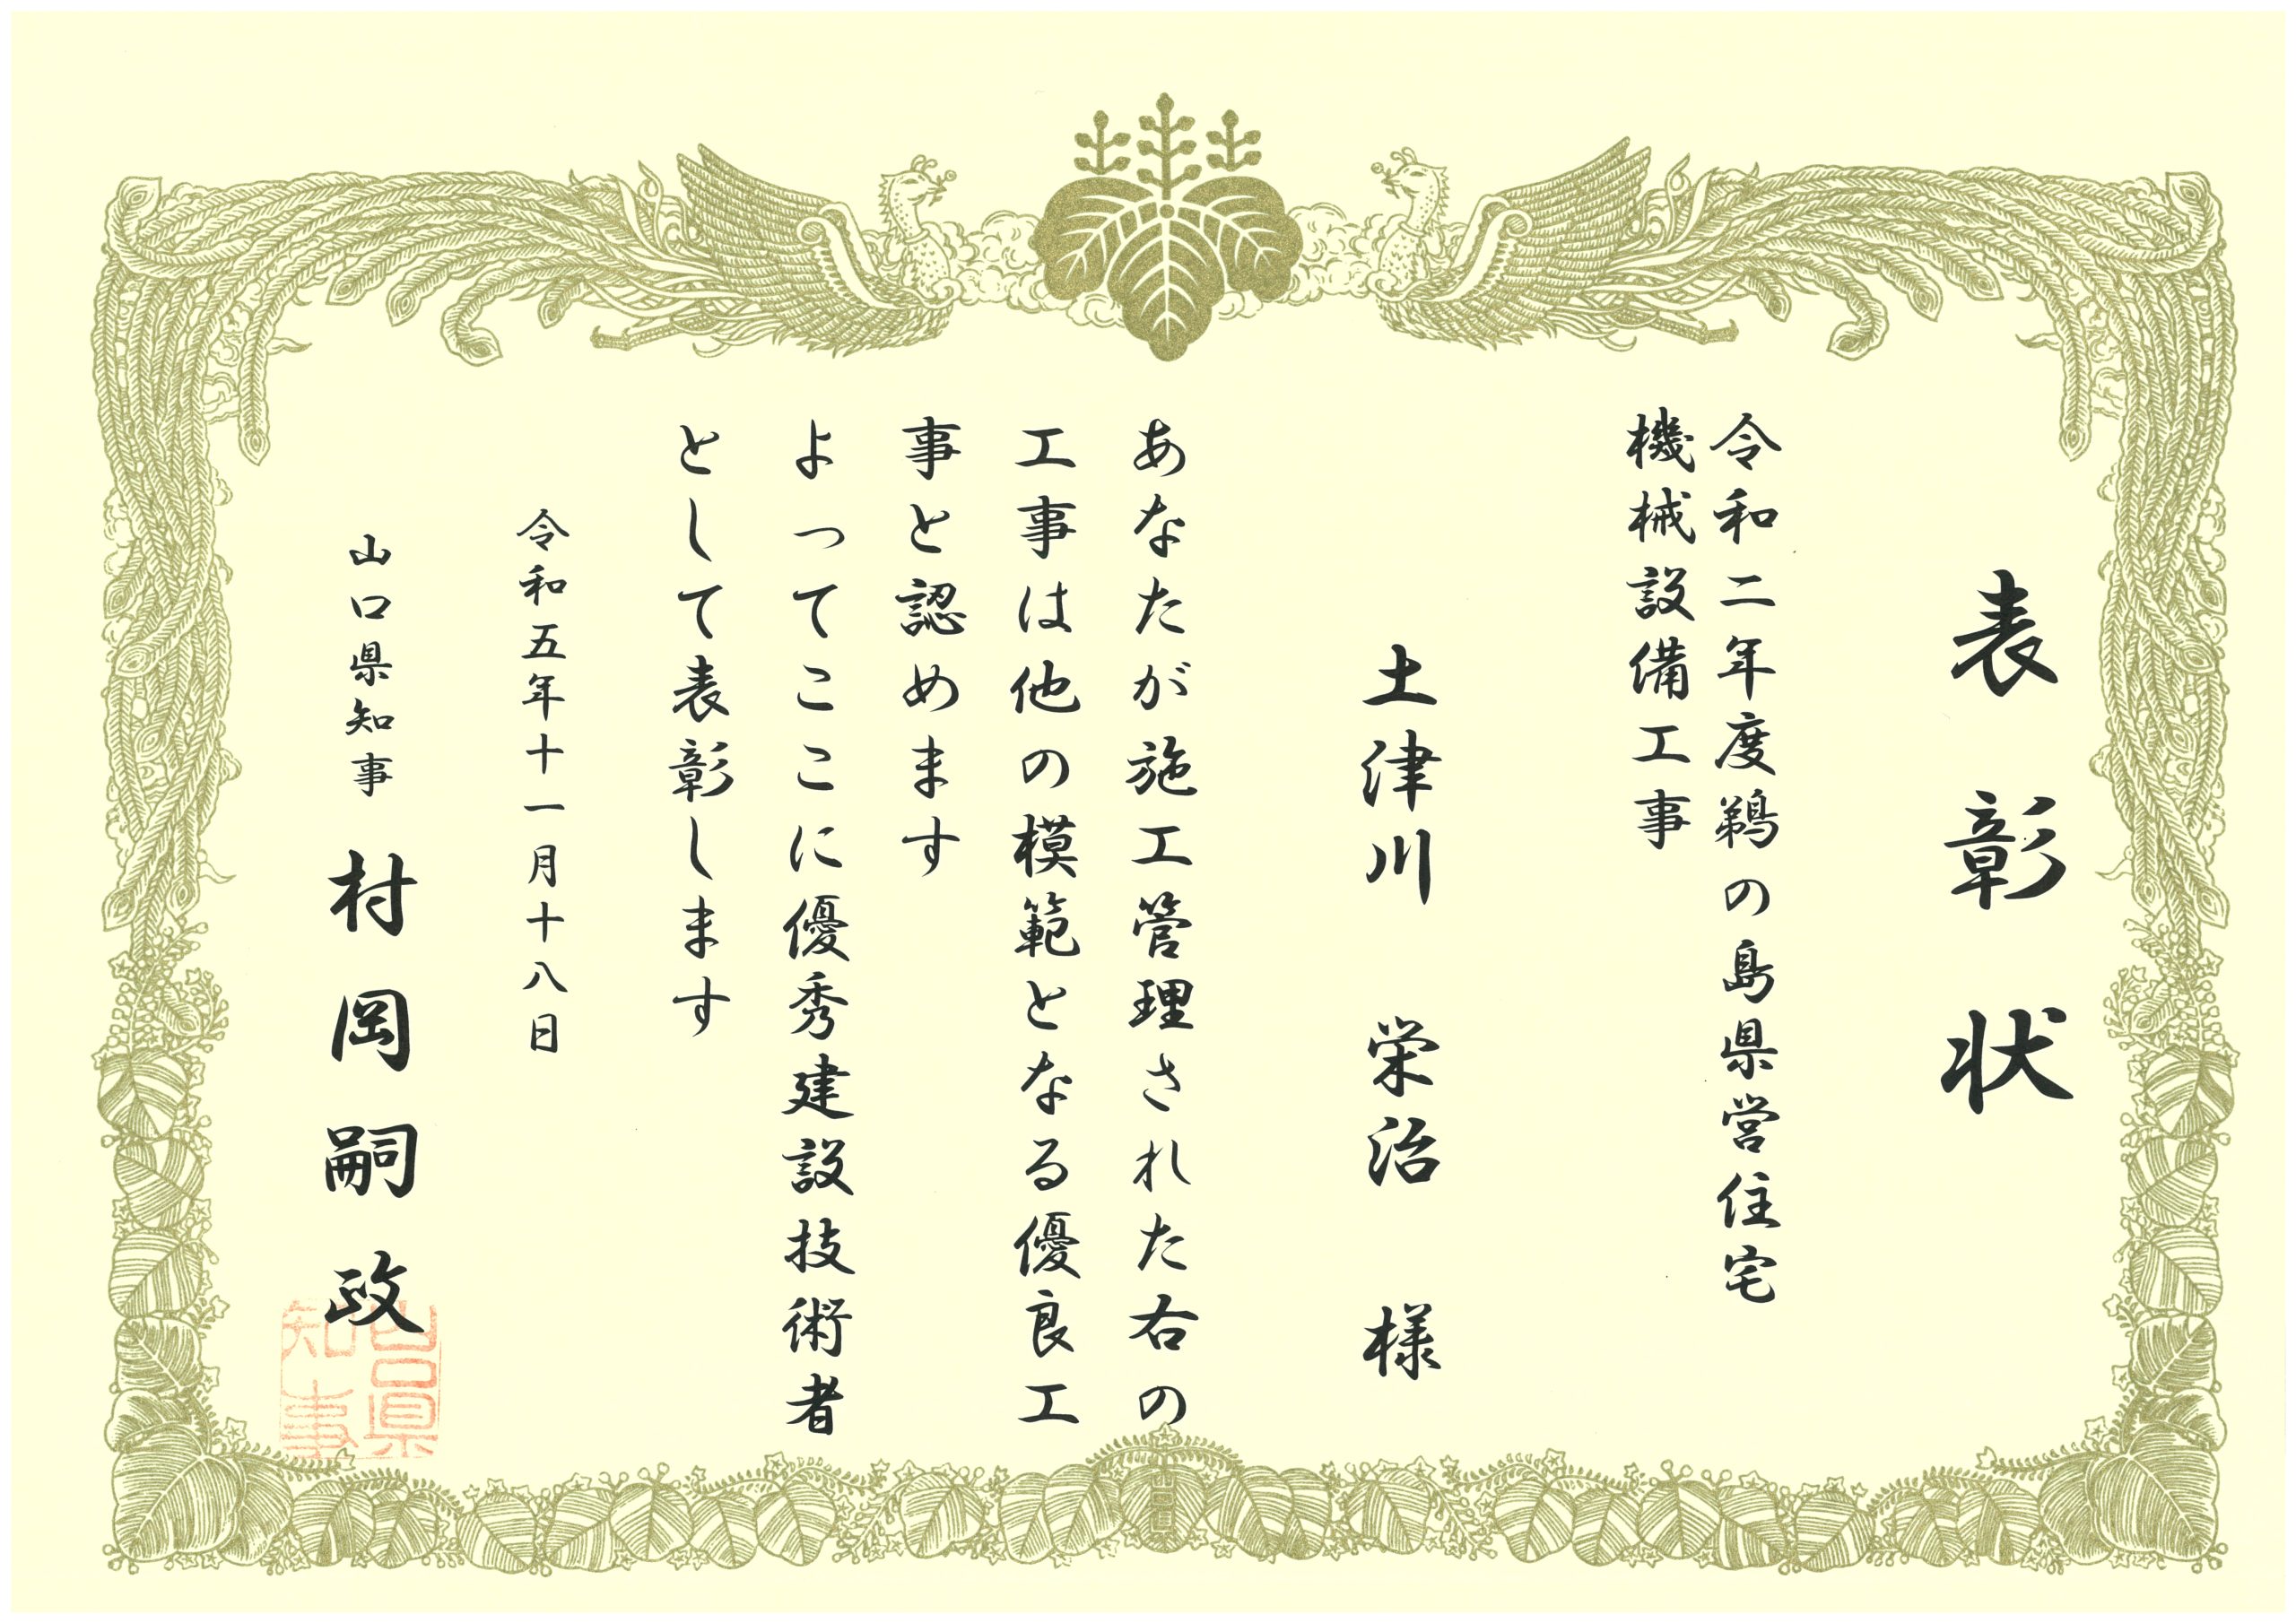 表彰状
令和二年度鵜の島県営住宅
機械設備工事
土津川 栄治 様
あなたが施工管理された右の
工事は他の模範となる優良工
事と認めます
よってここに優秀建設技術者
として表彰します
令和五年十一月十八日
山口県知事 村岡嗣政
山口県
知事